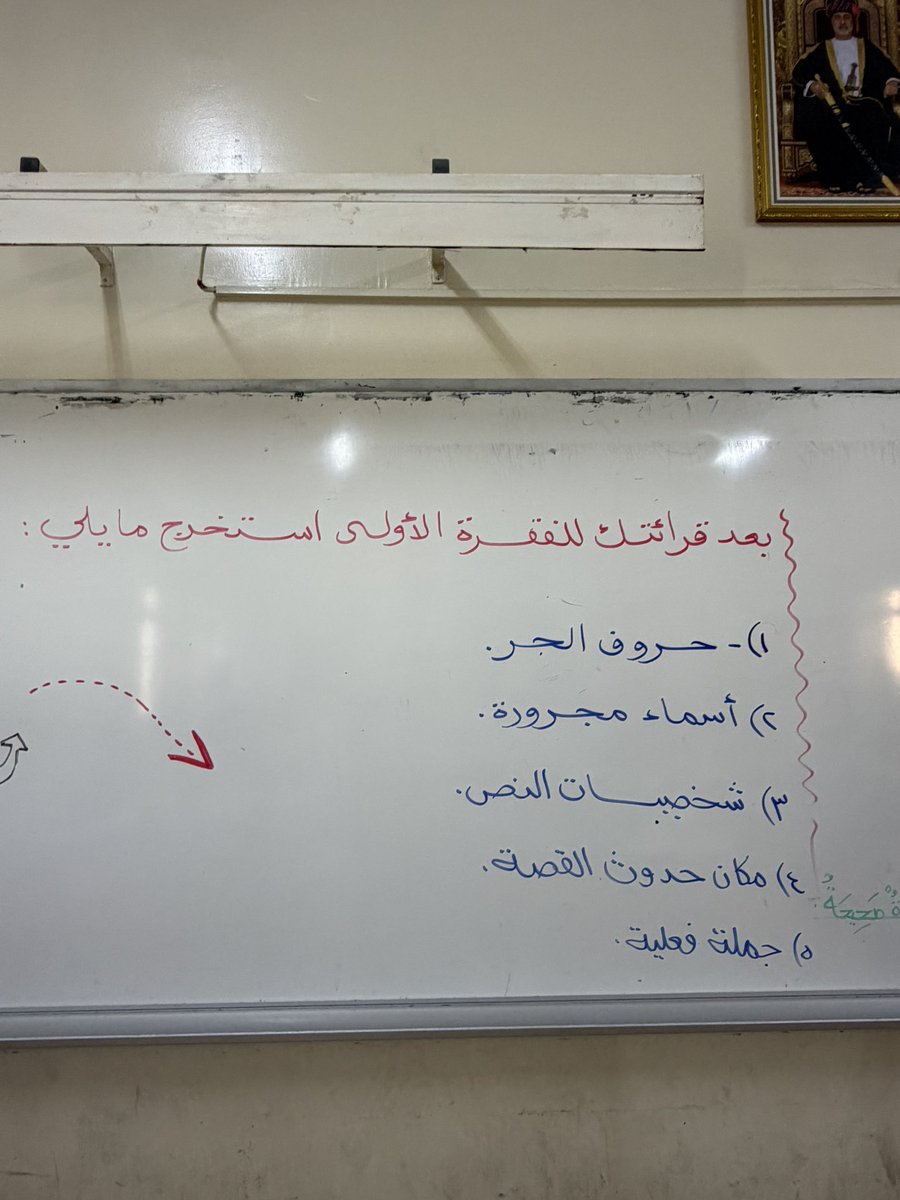 بعد قرائتك للفقرة الأولى استخرج ما يلي :
١)- حروف الجر.
٢) أسماء مجرورة.
٣) شخصيات النص.
٤) مكان حدوث القصة.
٥) جملة فعلية.